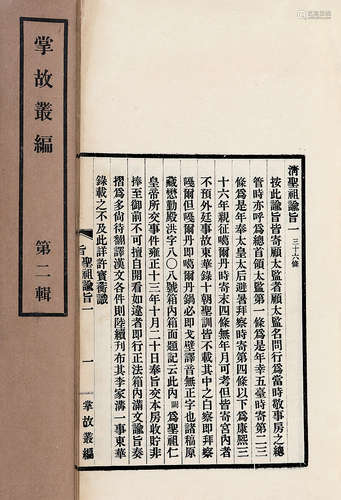 掌故叢編
第二輯
清聖祖諭旨一 三十六條
按此諭旨皆寄顧太監者顧太監名問行爲當時敬事房之總
管時亦呼爲總首領太監第一條爲是年幸五臺時寄第二三
條爲是年奉太皇太后避暑拜察時寄第四條以下爲康熙三
十六年親征噶爾丹時寄末四條無年月可考但皆寄宮內者
不預外廷事故東華錄十朝聖訓皆不載其中之白察即拜察
嘎爾但即噶爾丹鍋必即戈壁譯音無正字也諸稿原
藏懋勤殿洪字八〇八號箱內箱面題記云此內爲聖祖仁
皇帝所交事件雍正十三年十月二十日奉旨交本房收貯非
捧至御前不可擅自開看如違者即行正法箱內滿文諭旨奏
摺爲多尚待翻譯漢文各件則陸續刊布其李家溝一事東華
錄載之不及此詳許寶蘅識
聖祖諭旨一
一
掌故叢編